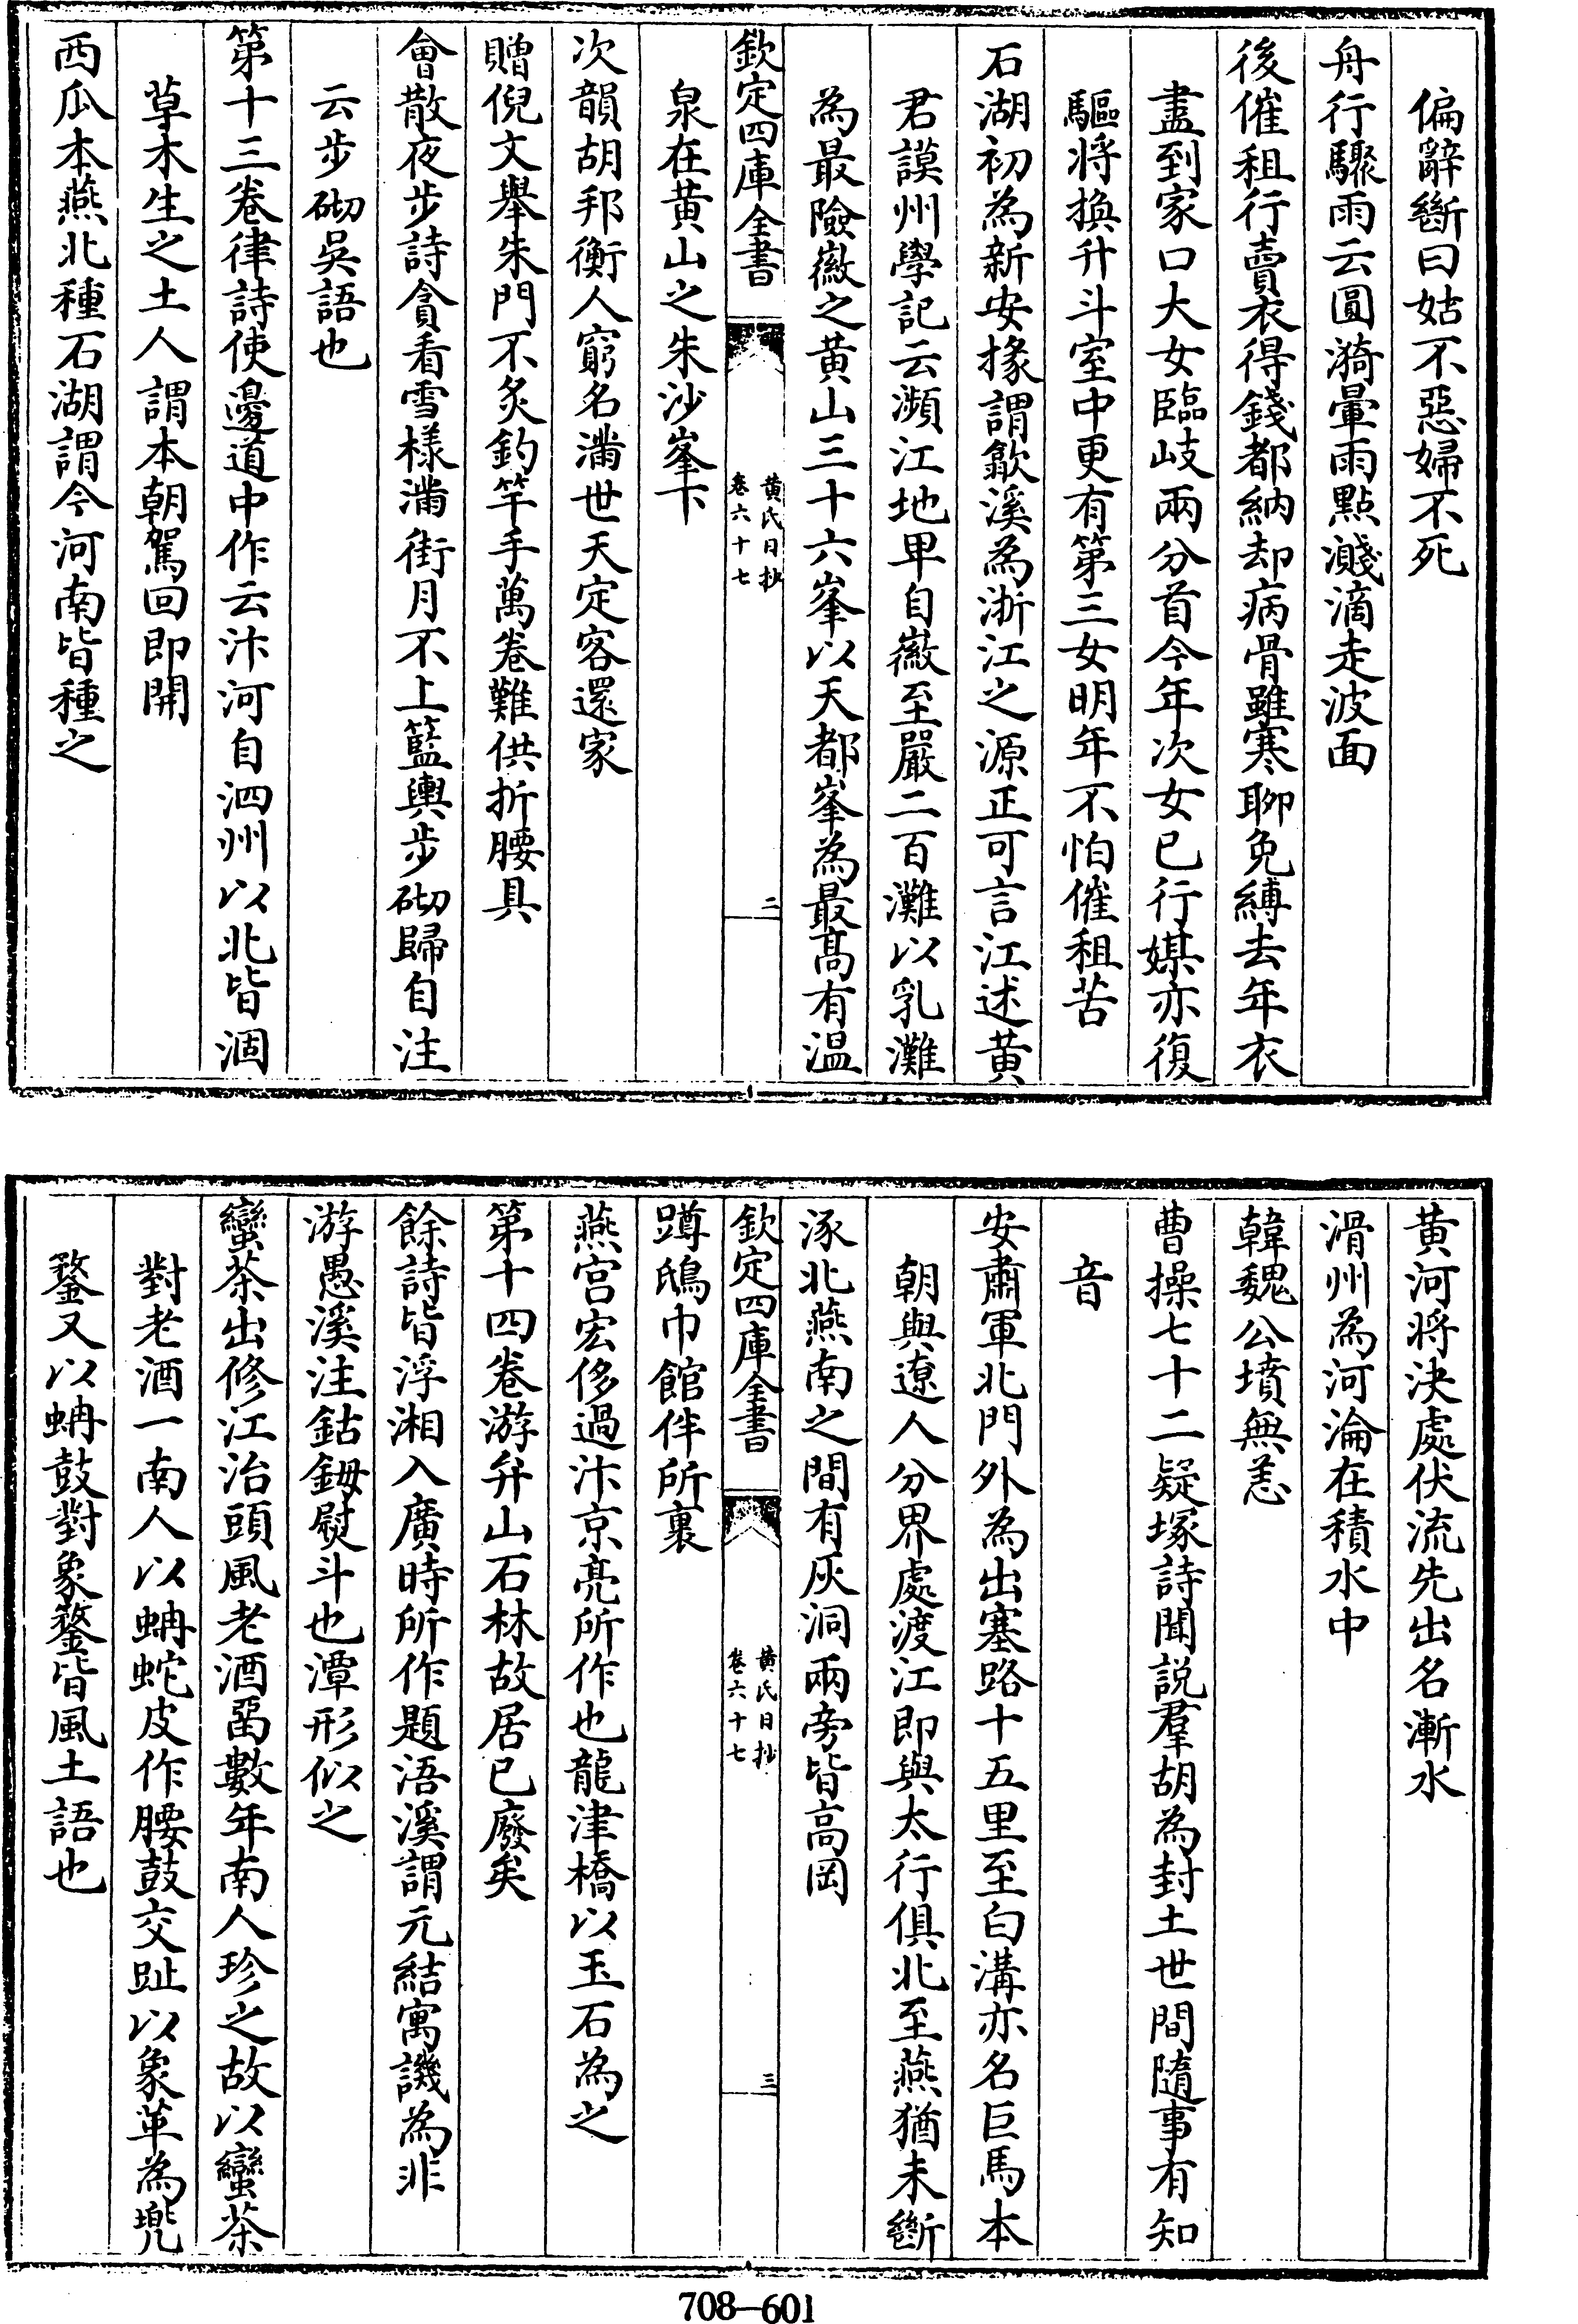 偏辭斷曰姑不惡婦不死
舟行驟雨云圓漪暈雨點濺滴走波面
後催租行賣衣得錢都納却病骨雖寒聊免縛去年衣
盡到家口大女臨岐兩分首今年次女已行媒亦復
驅將換升斗室中更有第三女明年不怕催租苦
石湖初為新安掾謂歙溪為浙江之源正可言江述黄
君謨州學記云瀕江地卑自徽至嚴二百灘以乳灘
為最險徽之黄山三十六峯以天都峯為最髙有温
欽定四庫全書
黄氏日抄
卷六十七
二
泉在黄山之朱沙峯下
次韻胡邦衡人窮名滿世天定客還家
贈倪文舉朱門不炙釣竿手萬卷難供折腰具
會散夜步詩貪看雪樣滿街月不上籃輿步砌歸自注
云步砌吳語也
第十三卷律詩使邊道中作云汴河自泗州以北皆涸
草木生之土人謂本朝駕回即開
西瓜本燕北種石湖謂今河南皆種之
黄河將決處伏流先出名漸水
滑州為河淪在積水中
韓魏公墳無恙
曹操七十二疑塚詩聞説羣胡為封土世間隨事有知
音
安肅軍北門外為出塞路十五里至白溝亦名巨馬本
朝與遼人分界處渡江即與太行俱北至燕猶未斷
涿北燕南之間有灰洞兩旁皆高岡
欽定四庫全書
黄氏日抄
卷六十七
三
蹲鴟巾館伴所裹
燕宫宏侈過汴京亮所作也龍津橋以玉石為之
第十四卷游弁山石林故居已廢矣
餘詩皆浮湘入廣時所作題浯溪謂元結寓譏為非
游愚溪注鈷鉧熨斗也潭形似之
蠻茶出修江治頭風老酒啚數年南人珍之故以蠻茶
對老酒一南人以蚺蛇皮作腰鼓交趾以象革為兜
鍪又以蚺鼓對象鍪皆風土語也
708—601